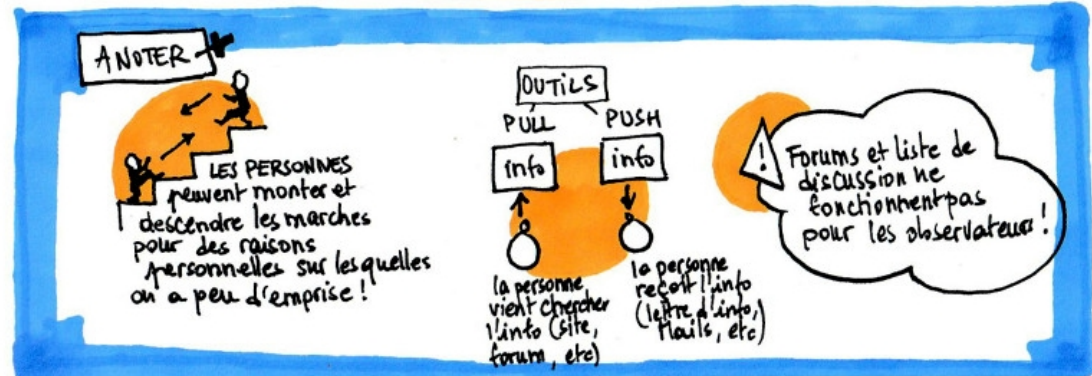 A NOTER
LES PERSONNES
peuvent monter et
descendre les marches
pour des raisons
personnelles sur lesquelles
on a peu d'emprise !
OUTILS
PULL
PUSH
info
info
la personne
vient chercher
l'info (site,
forum, etc)
la personne
reçoit l'info
(lettre d'info,
Mails, etc)
!
Forums et liste de
discussion ne
fonctionnent pas
pour les observateurs !